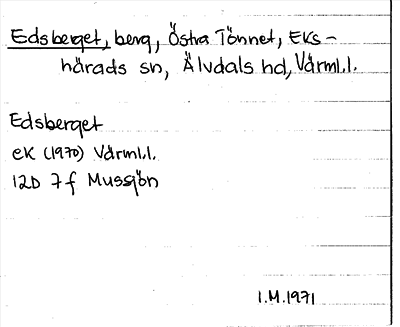 Edsberget, berg, Östra Tönnet, Eks-
härads sn, Älvdals hd, Värml.l.
Edsberget
eK (1970) Värml.l.
12D 7f Mussjön
I.M.1971